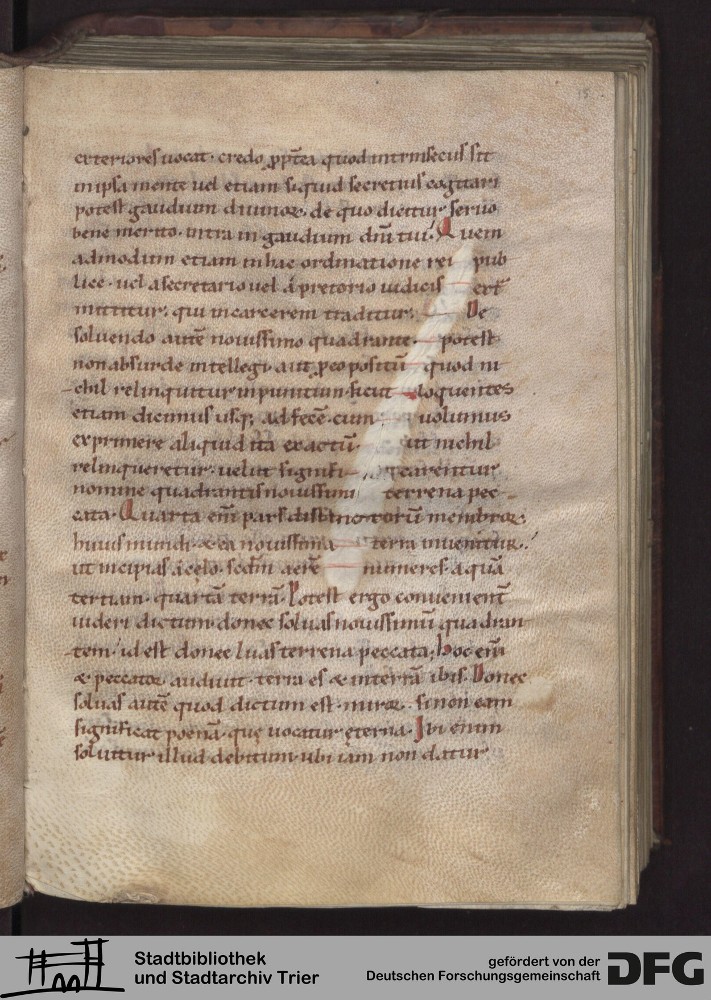 15
exteriores uocat · credo ꝓpt̄ea quod intrinsecus sit
in ipsa mente uel etiam siquid secretius cogitari
potest gaudium diuinoꝝ · de quo dicitur seruo
bene merito · intra in gaudium dn̄i tui · Quem
admodum etiam in hac ordinatione rei pub
lice · uel a secretario uel a pretorio iudicis ext̄
mittitur · qui in carcerem traditur · De
soluendo autē nouissimo quadrante · potest
non absurde intellegi aut ꝓeo positū quod ni
chil relinquitur inpunitum · sicut loquentes
etiam dicimus usq; ad fecē · cum uolumus
exprimere aliquid ita exactū · ut nichil
relinqueretur · uelut signifi carentur
nomine quadrantis nouissimi terrena pec
cata · Quarta eni͂ pars distinctorū membroꝝ
huius mundi · & ea nouissima terra inuenitur ·
ut incipias a celo · scd̄m aerē numeres · aquā
tertiam · quartā terrā · Potest ergo conuenient̄
uideri dictum · donec soluas nouissimū quadran
tem · id est donec luas terrena peccata; hoc eni͂
& peccator audiuit · terra es & in terrā ibis · Donec
soluas autē quod dictum est · miroꝝ · si non eam
significat poenā · quę uocatur ęterna · Ibi enim
soluitur illud debitum · ubi iam non datur
Stadtbibliothek
und Stadtarchiv Trier
gefördert von der
Deutschen Forschungsgemeinschaft
DFG